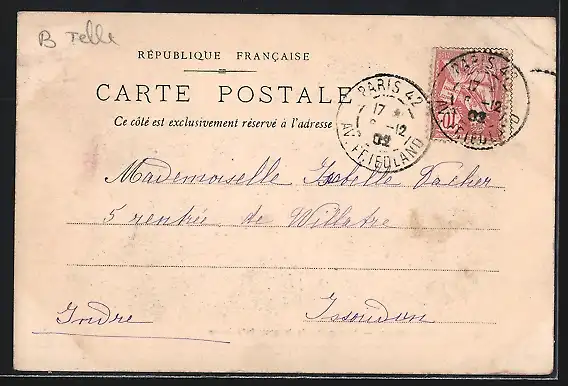 B Telle
RÉPUBLIQUE FRANÇAISE
CARTE POSTALE
Ce côté est exclusivement réservé à l'adresse
PARIS 42
17
8 -12
02
AV. FRIEDLAND
PARIS 42
17
-12
02
AV. FRIEDLAND
10
Mademoiselle Isabelle Vacher
5 rentrée de Villatre
Indre Issoudun